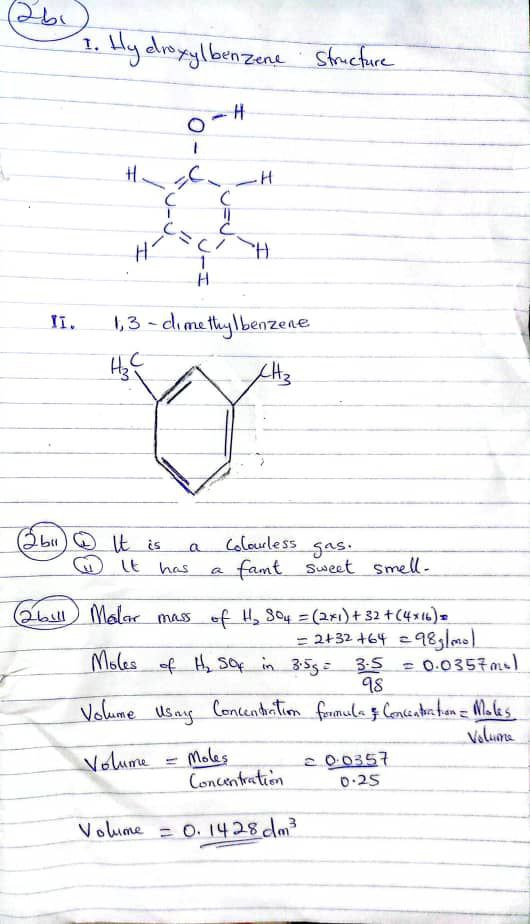 2bi
I. Hydroxylbenzene structure
O-H
H C H
C C
C C
H C H
H
II. 1,3-dimethylbenzene
H3C CH3
2bii (i) It is a Colourless gas.
(ii) It has a faint sweet smell.
2biii Molar mass of H2SO4 = (2×1)+32+(4×16)=
= 2+32+64 = 98g/mol
Moles of H2SO4 in 3.5g = 3.5/98 = 0.0357mol
Volume using Concentration formula; Concentration = Moles/Volume
Volume = Moles/Concentration = 0.0357/0.25
Volume = 0.1428dm³